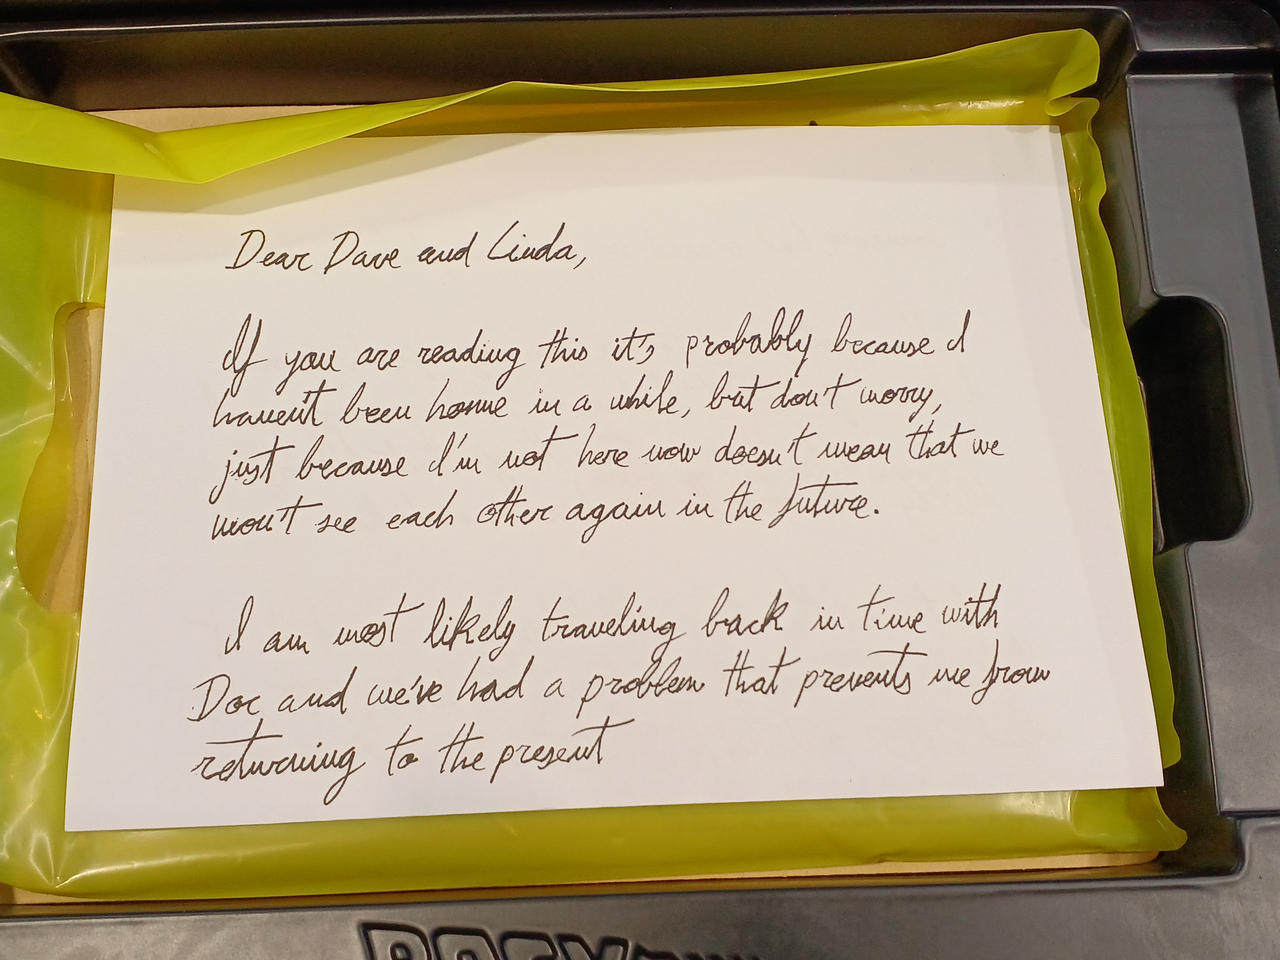 Dear Dave and Linda,
If you are reading this it's probably because I
haven't been home in a while, but don't worry,
just because I'm not here now doesn't mean that we
won't see each other again in the future.
I am most likely traveling back in time with
Doc and we've had a problem that prevents me from
returning to the present